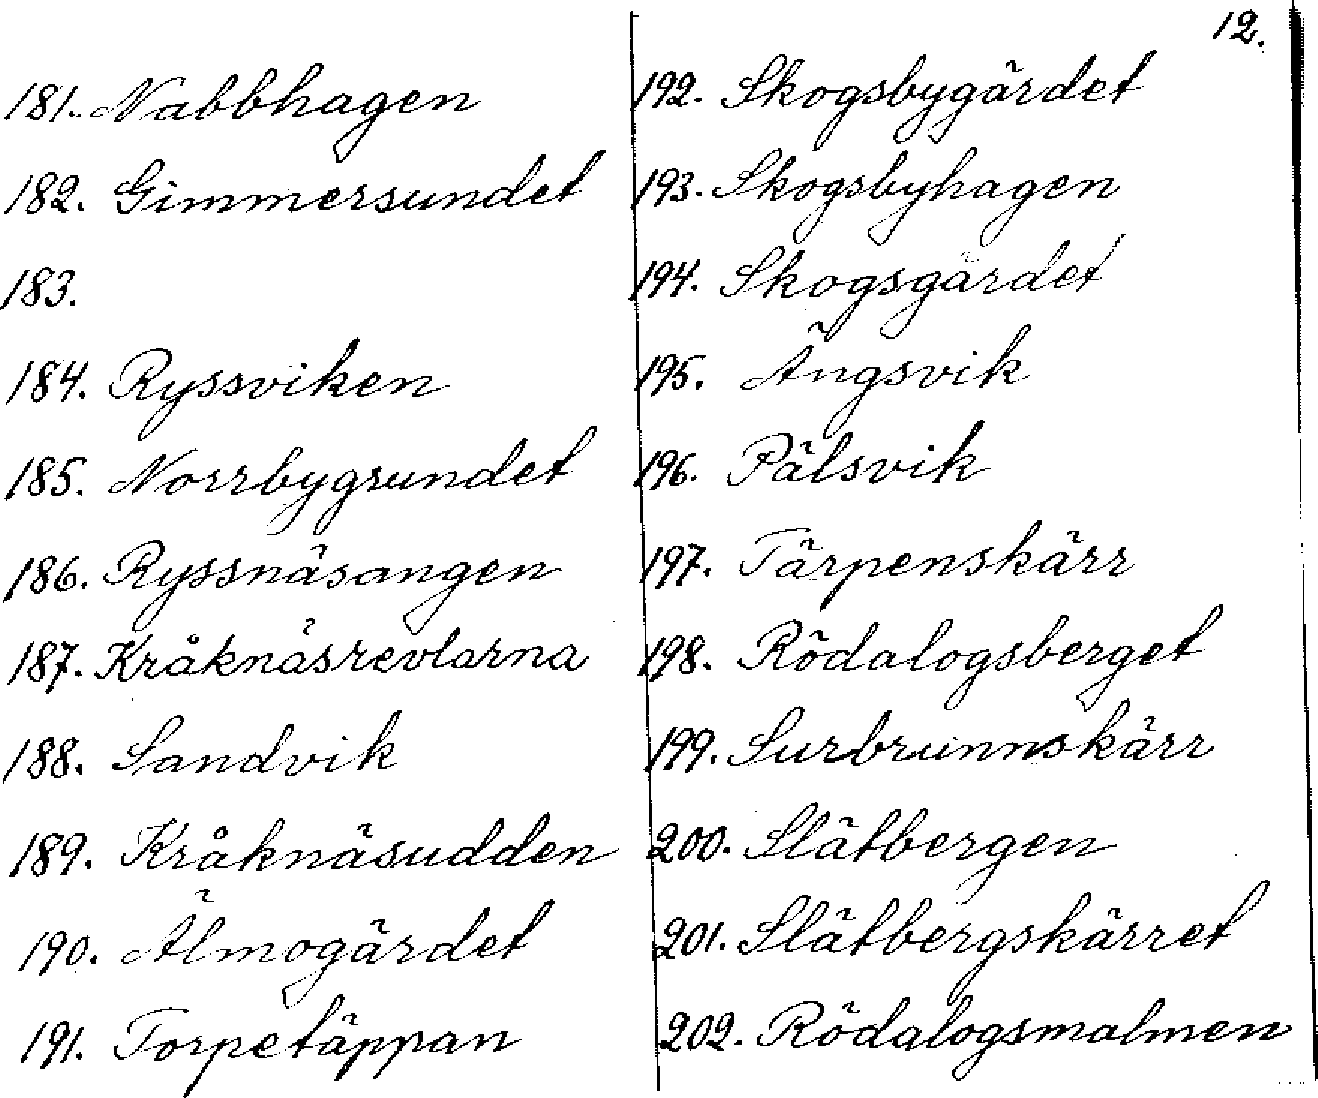 12.
181. Nabbhagen
182. Gimmersundet
183.
184. Ryssviken
185. Norrbygrundet
186. Ryssnäsangen
187. Kråknäsrevlarna
188. Sandvik
189. Kråknäsudden
190. Älmogärdet
191. Torpetäppan
192. Skogsbygärdet
193. Skogsbyhagen
194. Skogsgärdet
195. Ängsvik
196. Pälsvik
197. Tärpenskärr
198. Rödalogsberget
199. Surbrunnskärr
200. Slätbergen
201. Slätbergskärret
202. Rödalogsmalmen